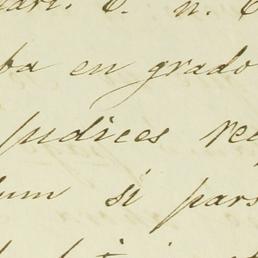 E. n.
ba en grado
judices rec
um si pars